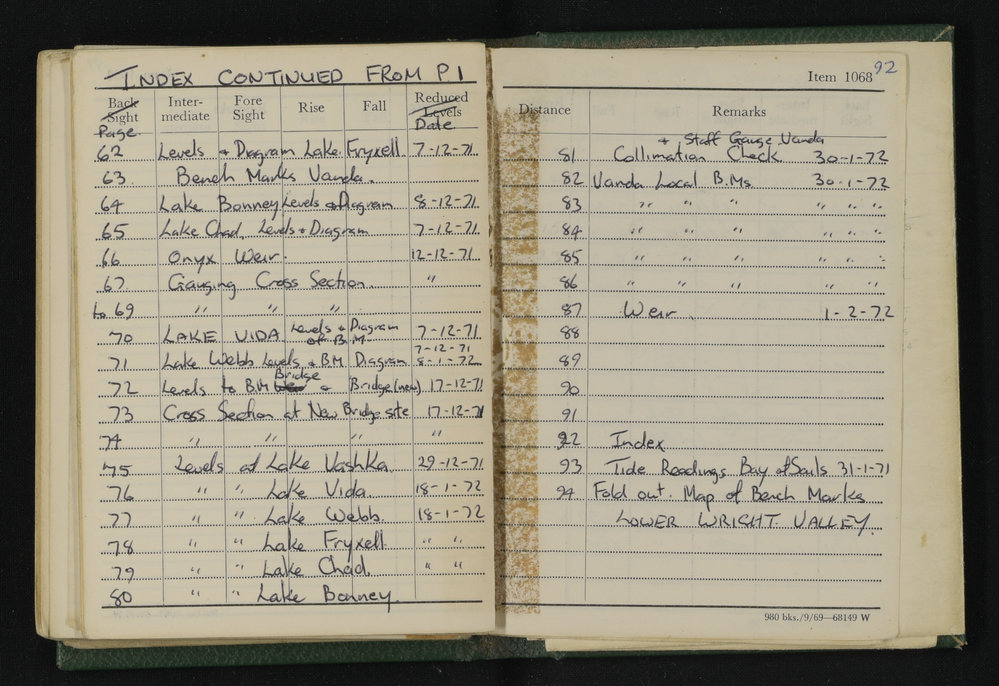 INDEX CONTINUED FROM P.1
Back Sight Inter-mediate Fore Sight Rise Fall Reduced Levels
Page Date
62 Levels + Diagram Lake Fryxell 7-12-71
63 Bench Marks Vanda.
64 Lake Bonney Levels + Diagram 8-12-71
65 Lake Chad, Levels + Diagram 7-12-71
66 Onyx Weir. 12-12-71
67 Gauging Cross Section. "
to 69 " " "
70 LAKE VIDA Levels + Diagram of B.M. 7-12-71
7-12-71
71 Lake Webb Levels + BM Diagram 8-1-72
Bridge
72 Levels to BM Weir + Bridge (new) 17-12-71
73 Cross Section at New Bridge site 17-12-71
74 " " " "
75 Levels at Lake Vashka 29-12-71
76 " " Lake Vida 18-1-72
77 " " Lake Webb 18-1-72
78 " " Lake Fryxell " "
79 " " Lake Chad " "
80 " " Lake Bonney.
92
Item 1068
Distance Remarks
+ Staff Gauge Vanda
81 Collimation Check 30-1-72
82 Vanda Local B.Ms 30-1-72
83 " " " " " "
84 " " " " " "
85 " " " " " "
86 " " " " " "
87 Weir 1-2-72
88
89
90
91
92 Index
93 Tide Readings Bay of Sails 31-1-71
94 Fold out. Map of Bench Marks
LOWER WRIGHT VALLEY.
980 bks./9/69—68149 W